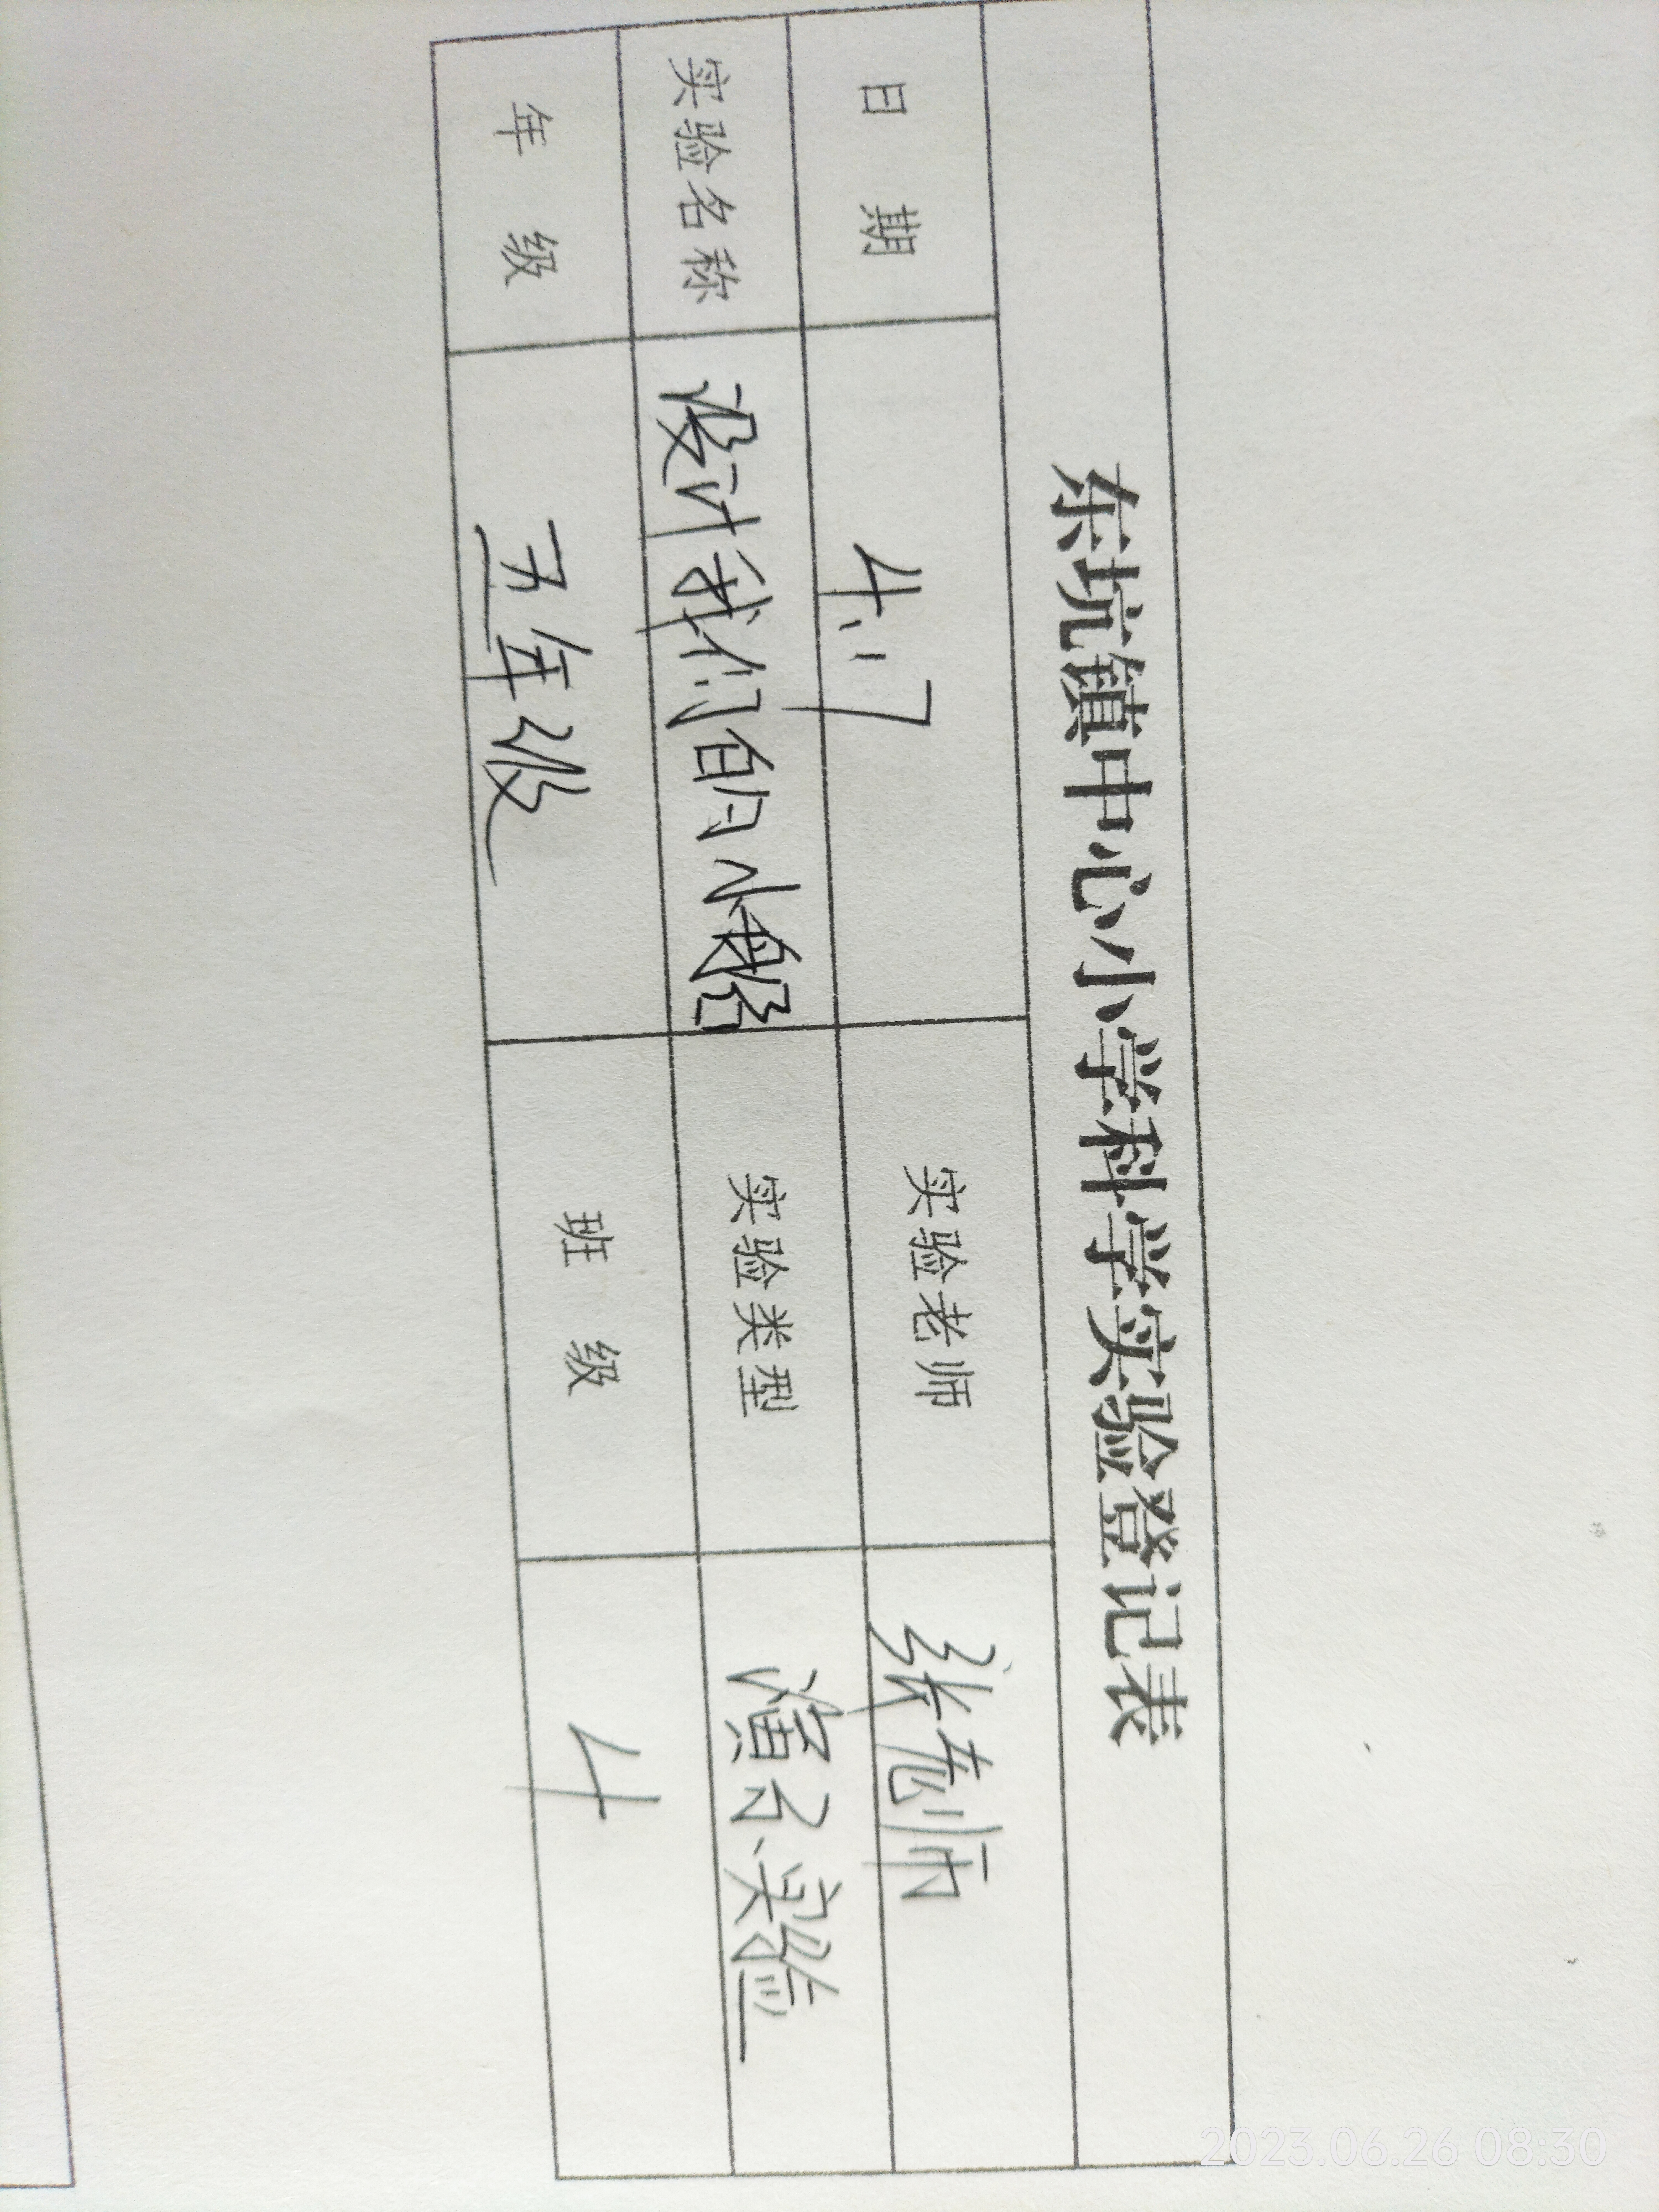 东坑镇中心小学科学实验登记表
日 期 4.17 实验老师 张老师
实验名称 设计我们的小船 实验类型 演示实验
年 级 五年级 班 级 4
2023.06.26 08:30